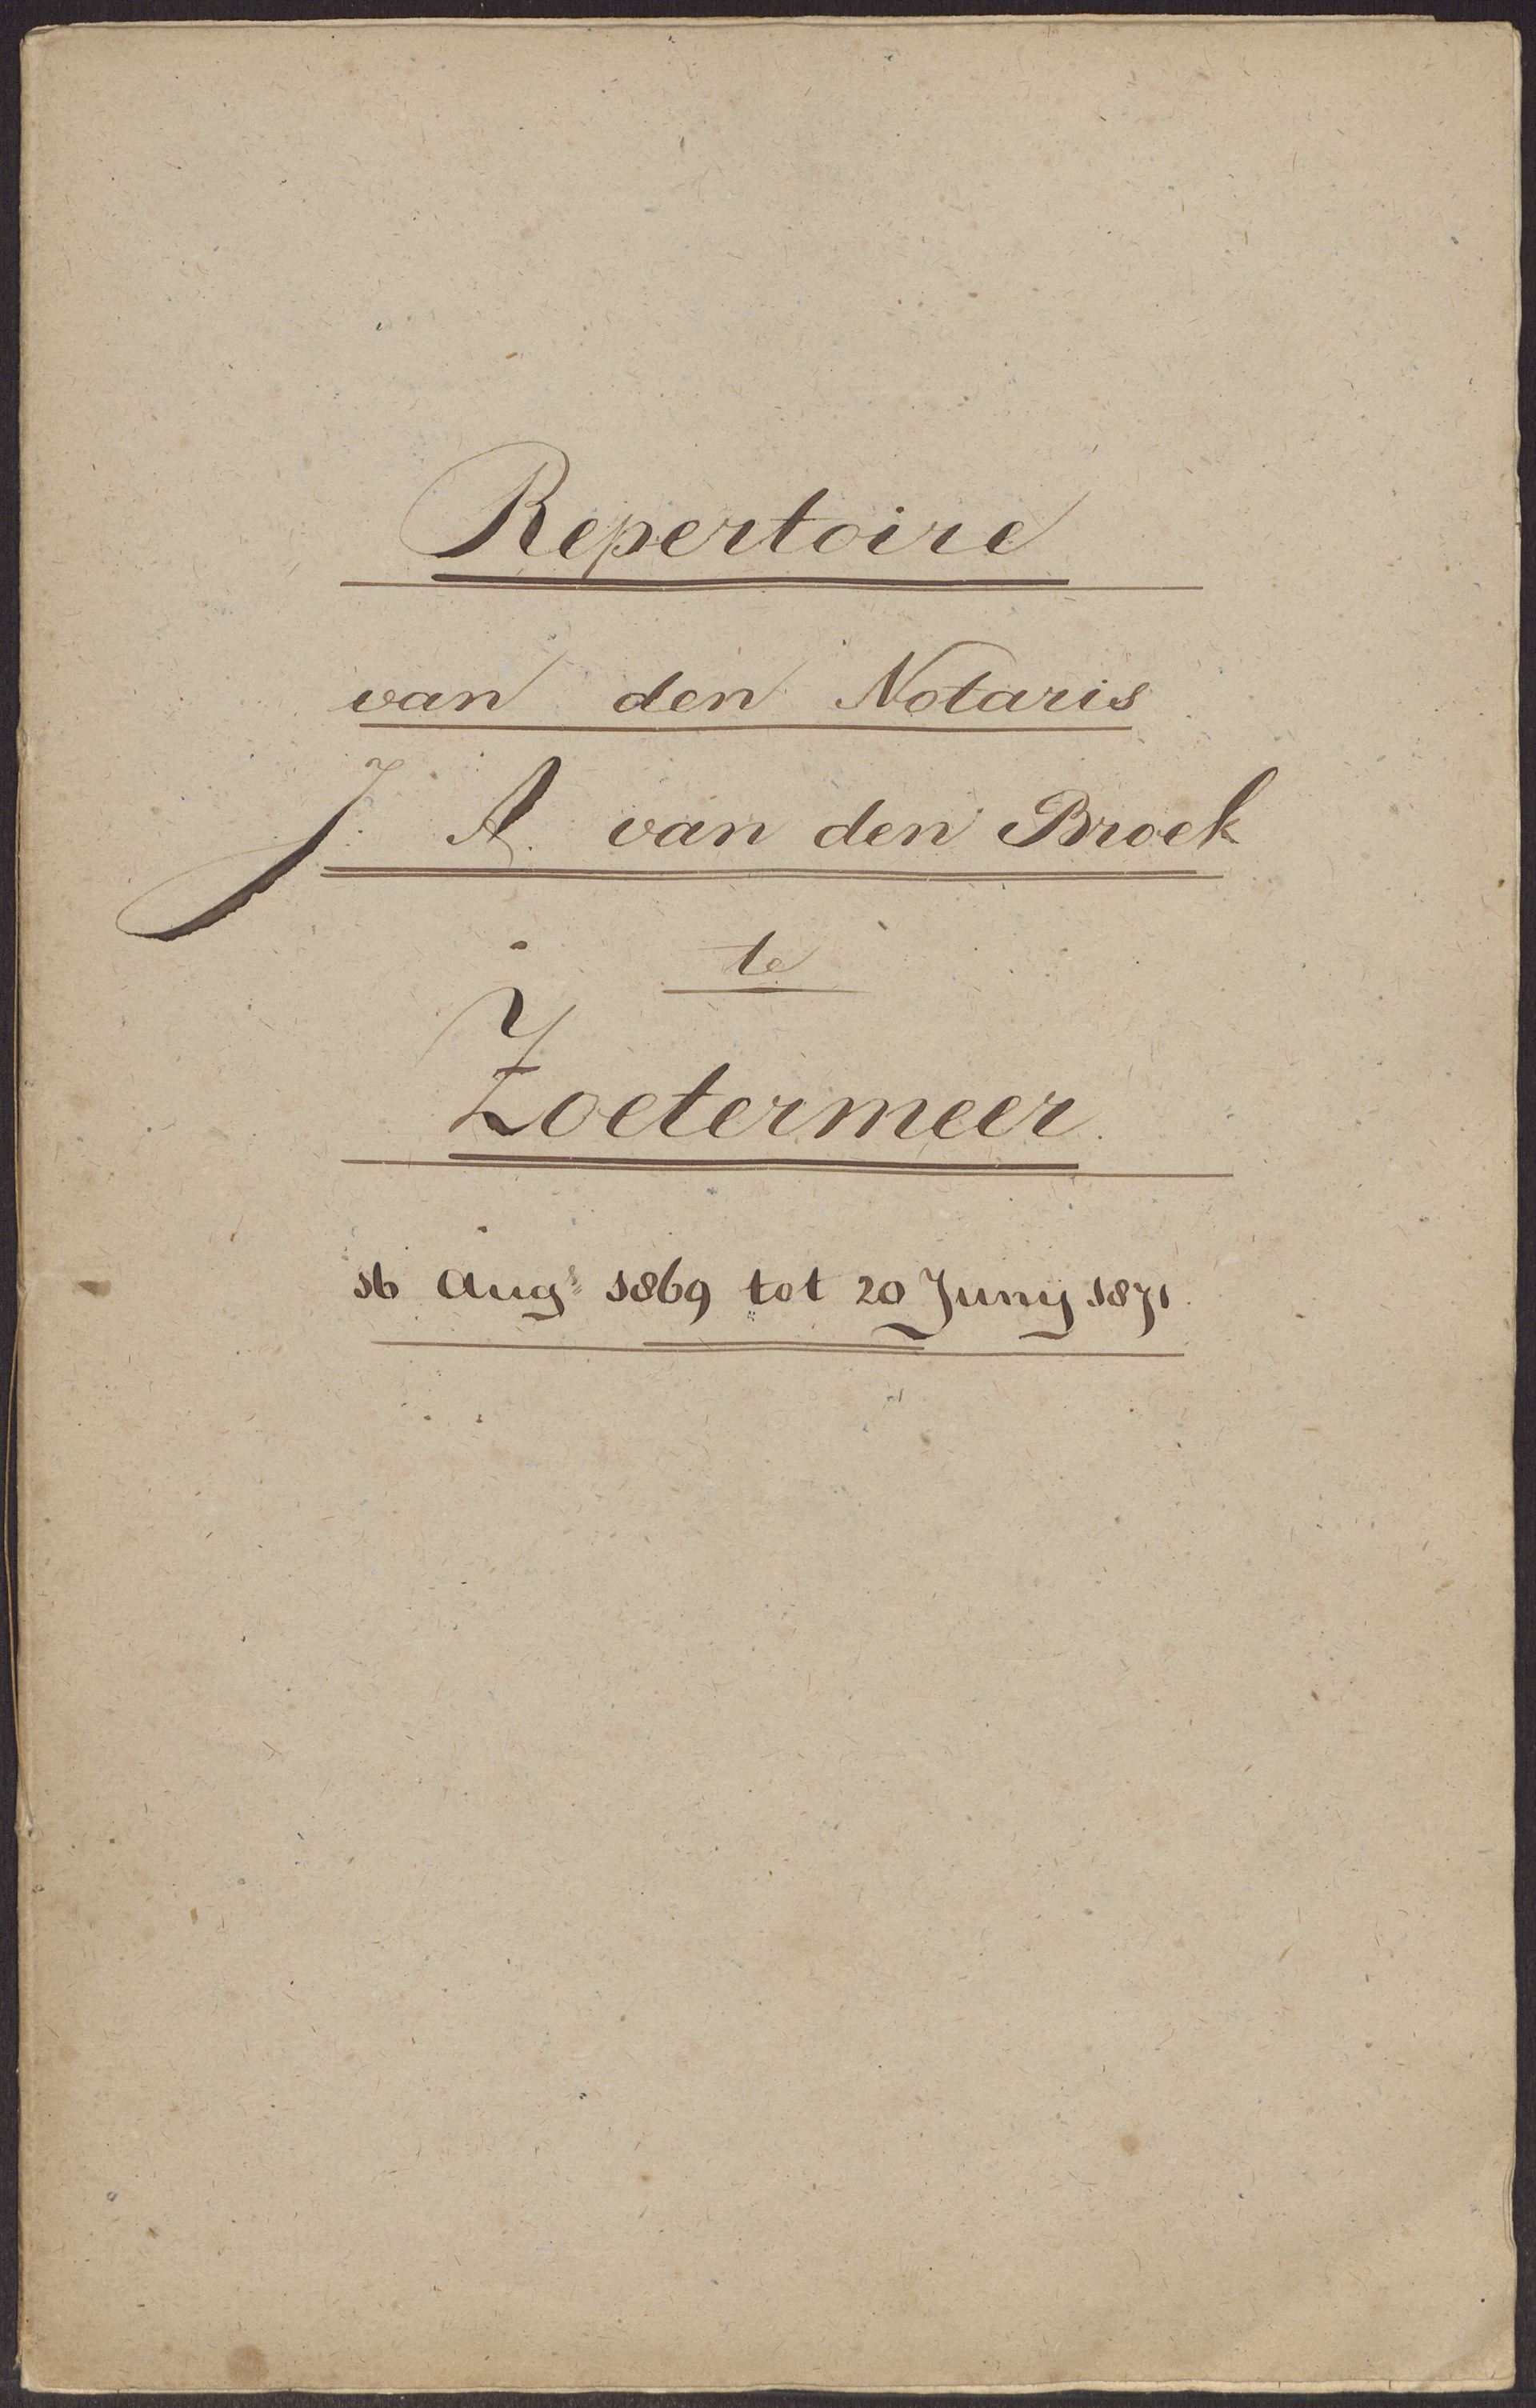 Repertoire
van den Notaris
J. A. van den Broek
te
Zoetermeer.
16 Augs 1869 tot 20 Junij 1871.